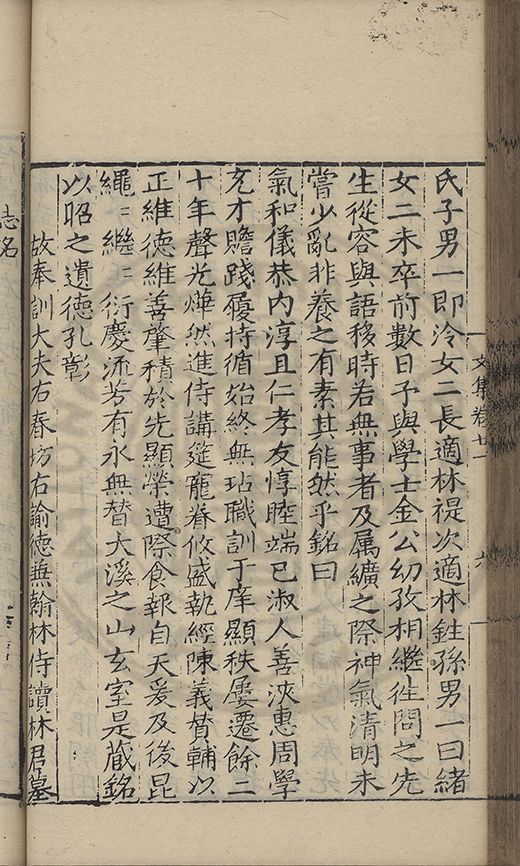 氏子男一即泠女二長適林禔次適林鉎孫男一曰緒
女二未卒前數日予與學士金公幼孜相繼徃問之先
生從容與語移時若無事者及属纊之際神氣清明未
嘗少亂非養之有素其能然乎銘曰
氣和儀恭内淳且仁孝友惇睦端已淑人善浹惠周學
充才贍踐履持循始終無玷職訓于庠顯秩屢遷餘二
十年聲光燁然進侍講筵寵眷攸盛執經陳義贊輔以
正維德維善肇積於先顯榮遭際食報自天爰及後昆
繩〻繼〻衍慶流芳有永無替大溪之山玄室是蔵銘
以昭之遺德孔彰
故奉訓大夫右春坊右諭德兼翰林侍讀林君墓
誌名
文集卷廿一
六